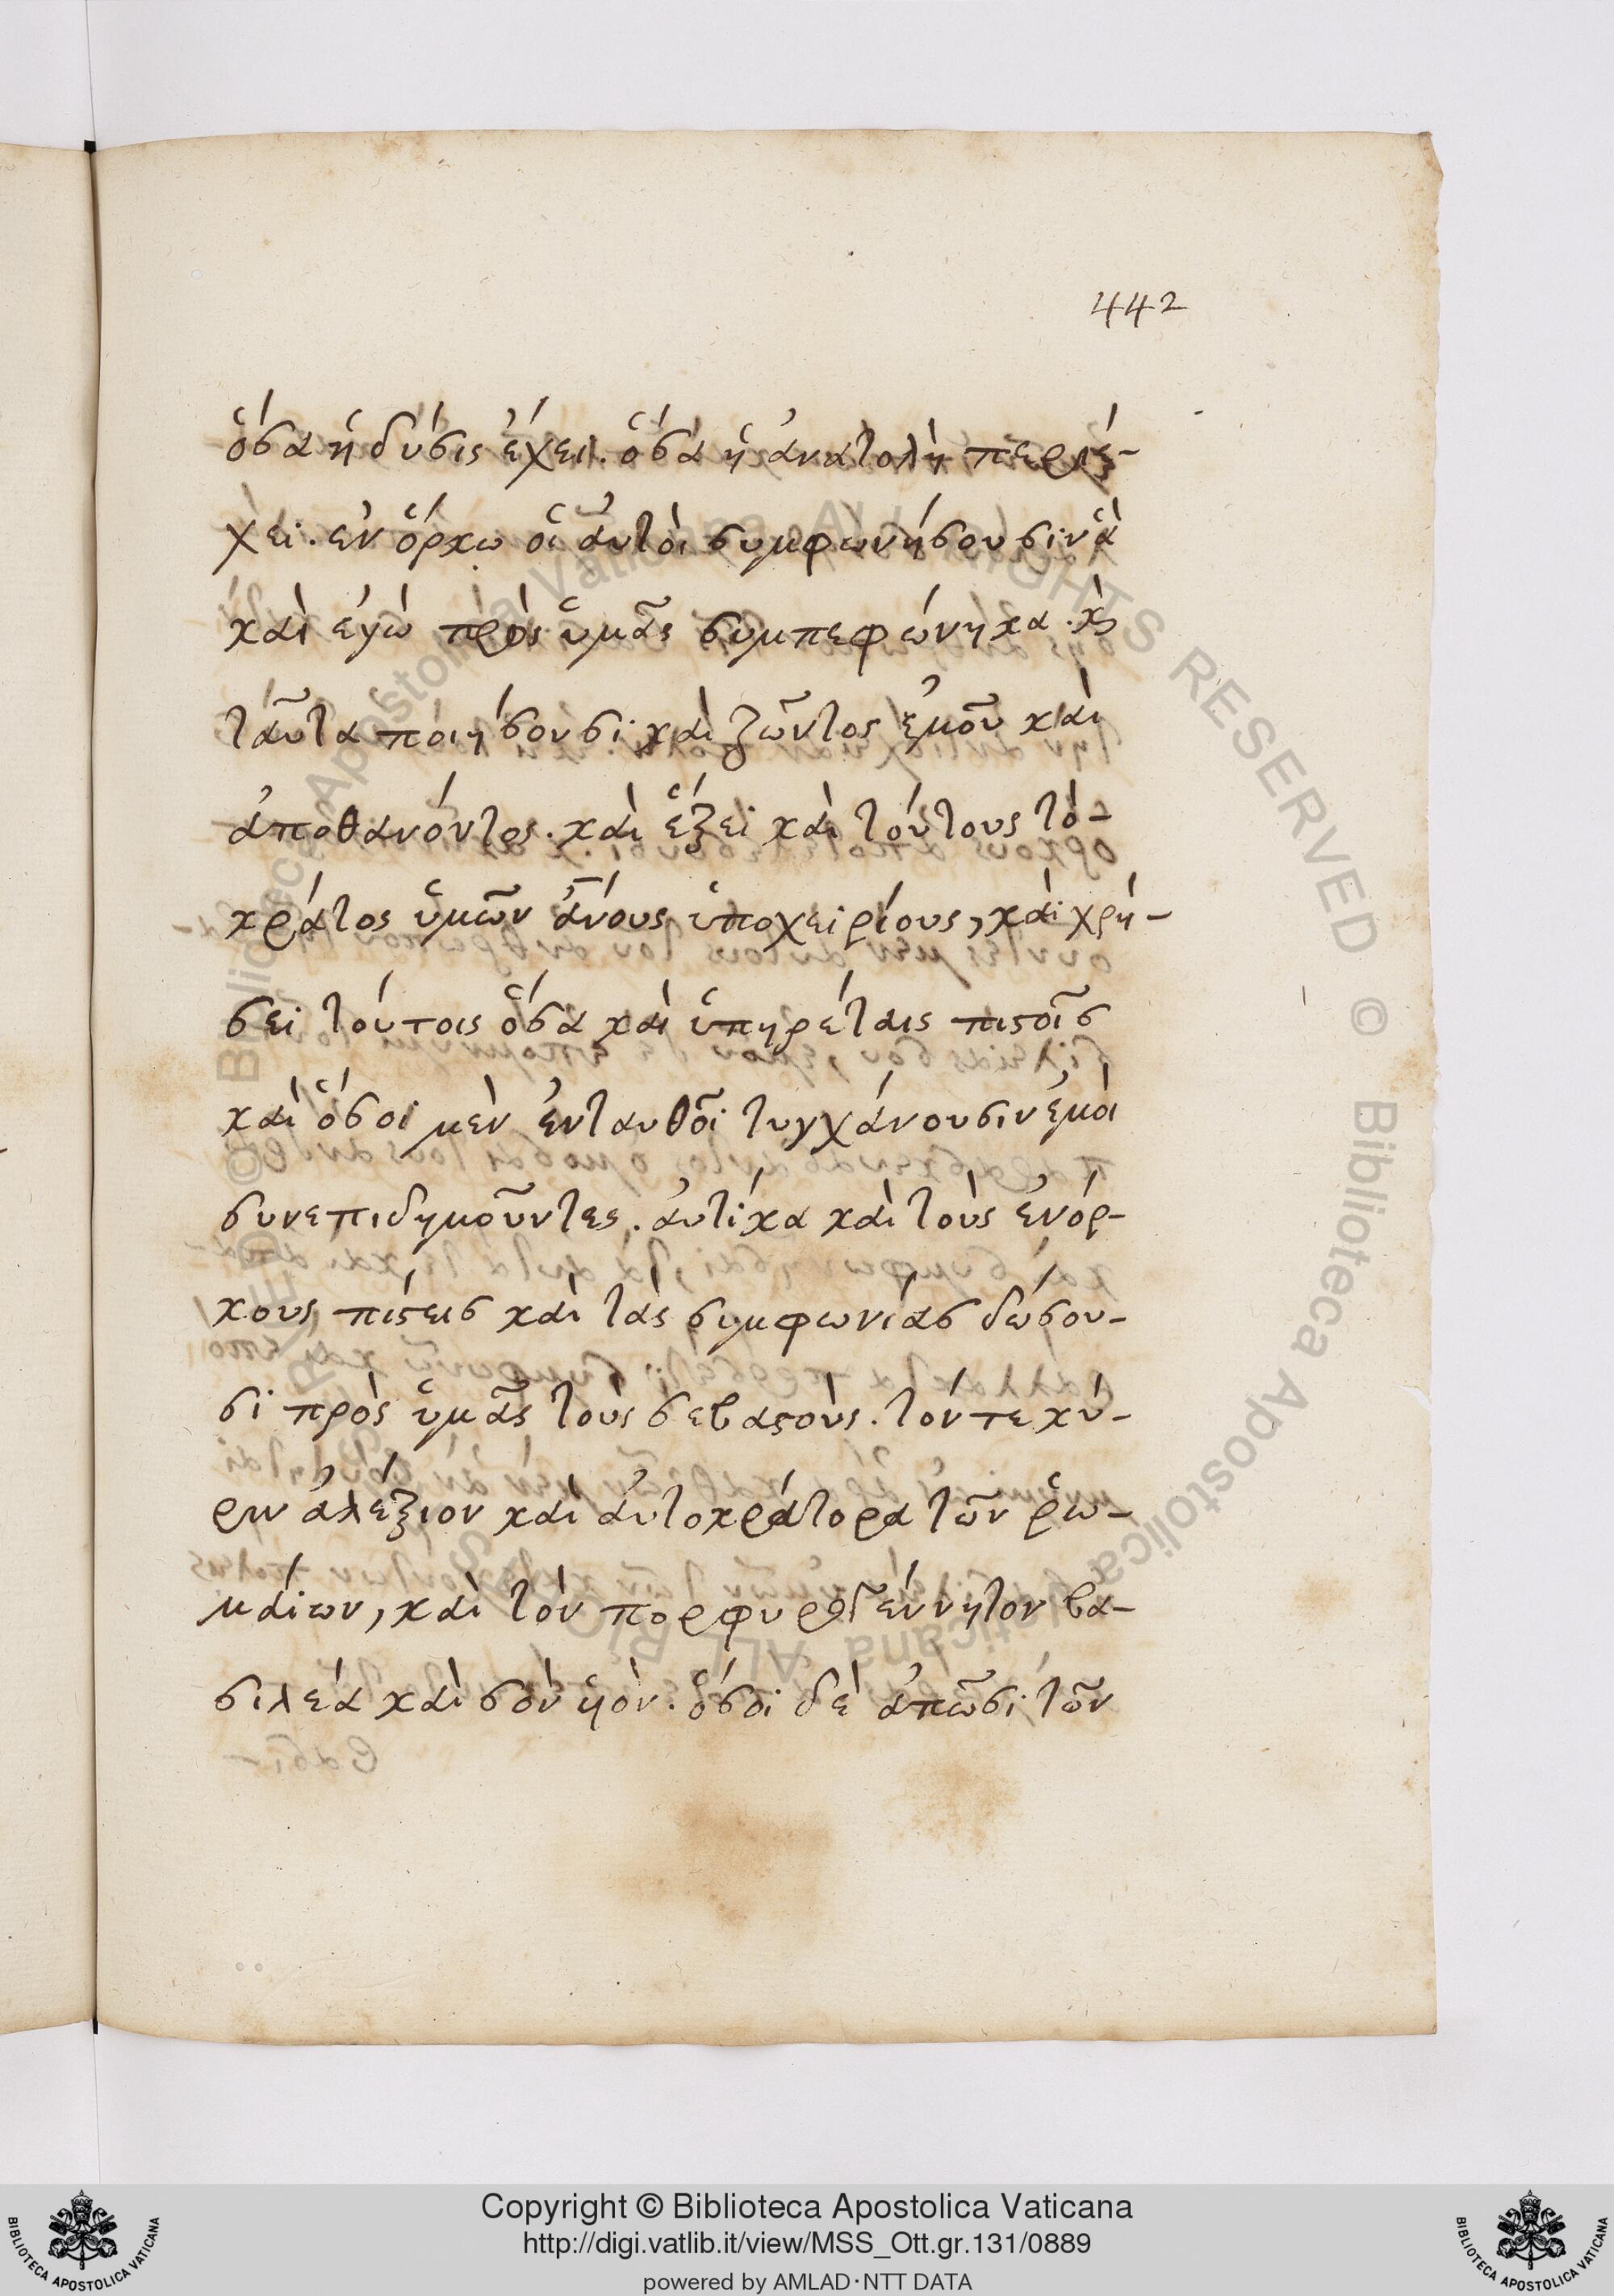 442
ὅσα ἡ δύσις ἔχει. ὅσα ἡ ἀνατολὴ περιέ-
χει. ἐν ὅρκω οἱ αὐτοὶ συμφωνήσουσιν ἃ
καὶ ἐγὼ πρὸς ὑμᾶς συμπεφώνηκα. κ̀
ταῦτα ποιήσουσι καὶ ζῶντος ἐμοῦ καὶ
ἀποθανόντος. καὶ ἕξει καὶ τούτους τὸ-
κράτος ὑμῶν ἀνους ὑποχειρίους, καὶ χρή-
σει τούτοις ὅσα καὶ ὑπηρέταις πιστοῖς
καὶ ὅσοι μὲν ἐνταυθοῖ τυγχάνουσιν ἐμοὶ
συνεπιδημοῦντες. αὐτίκα καὶ τοὺς ἐνόρ-
κους πίστεις καὶ τὰς συμφωνίας δώσου-
σι πρὸς ὑμᾶς τοὺς σεβαστοὺς. τόν τε κύ-
ριν ἀλέξιον καὶ αὐτοκράτορα τῶν ῥω-
μαίων, καὶ τὸν πορφυρογέννητον βα-
σιλέα καὶ σὸν ὑὸν. ὅσοι δὲ ἀπῶσι τῶν
Copyright © Biblioteca Apostolica Vaticana
http://digi.vatlib.it/view/MSS_Ott.gr.131/0889
powered by AMLAD·NTT DATA
BIBLIOTECA APOSTOLICA VATICANA
BIBLIOTECA APOSTOLICA VATICANA